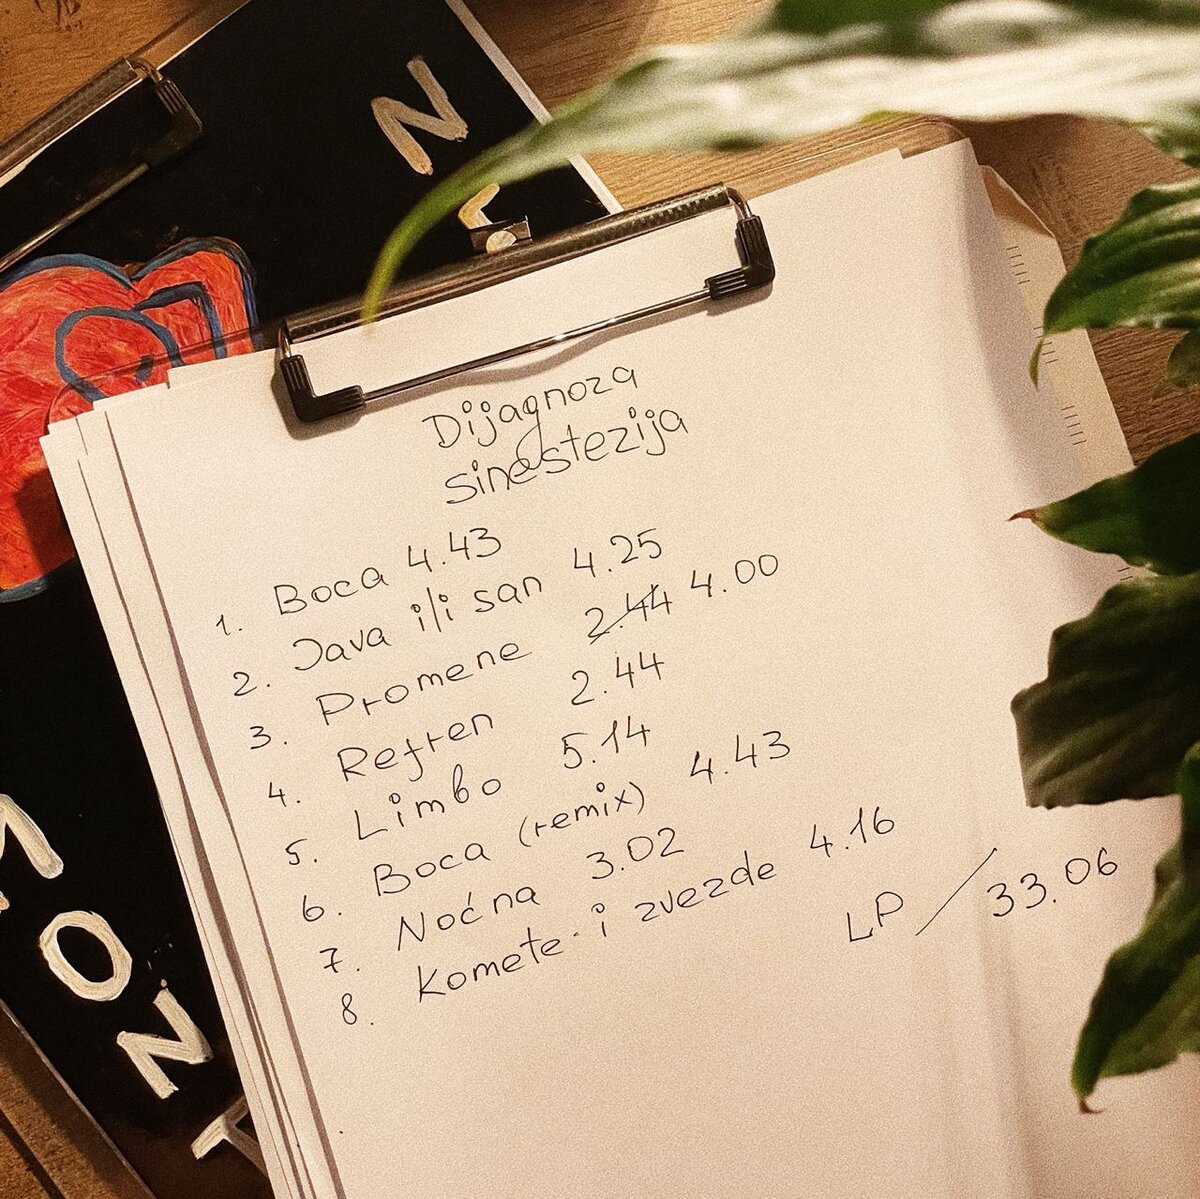 Dijagnoza
sinestezija
1. Boca 4.43
2. Java ili san 4.25
3. Promene 2.44 4.00
4. Refren 2.44
5. Limbo 5.14
6. Boca (remix) 4.43
7. Noćna 3.02
8. Komete i zvezde 4.16
LP / 33.06
N
O
N